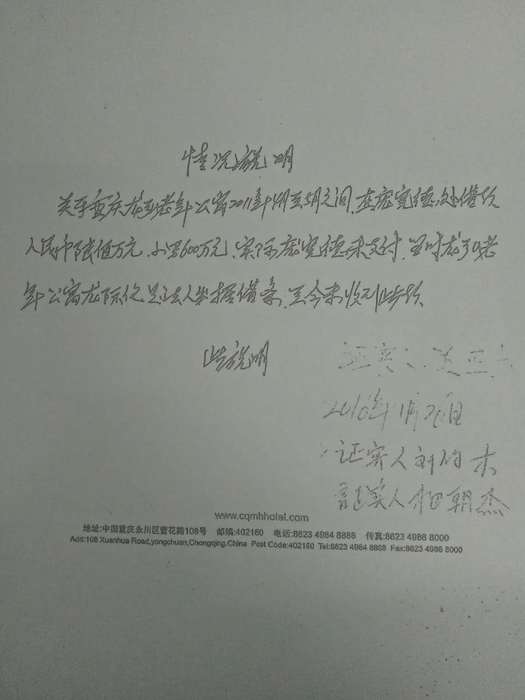 情况说明
关于重庆龙珍老年公寓2011年 月至 月之间,在庞宽德处借款
人民币陆佰万元,小写600万元,实际庞宽德未支付,当时龙珍老
年公寓龙际伦是法人出据借条,至今未收到此款
此说明
证实人
2016年11月 日
证实人
证实人 朝杰
www.cqmhhotal.com
地址:中国重庆永川区萱花路108号 邮编:402160 电话:8623 4984 8888 传真:8623 4986 8000
Ads:108 Xuanhua Road,yongchuan,Chongqing.China Post Code:402160 Tel:8623 4984 8888 Fax:8623 4986 8000